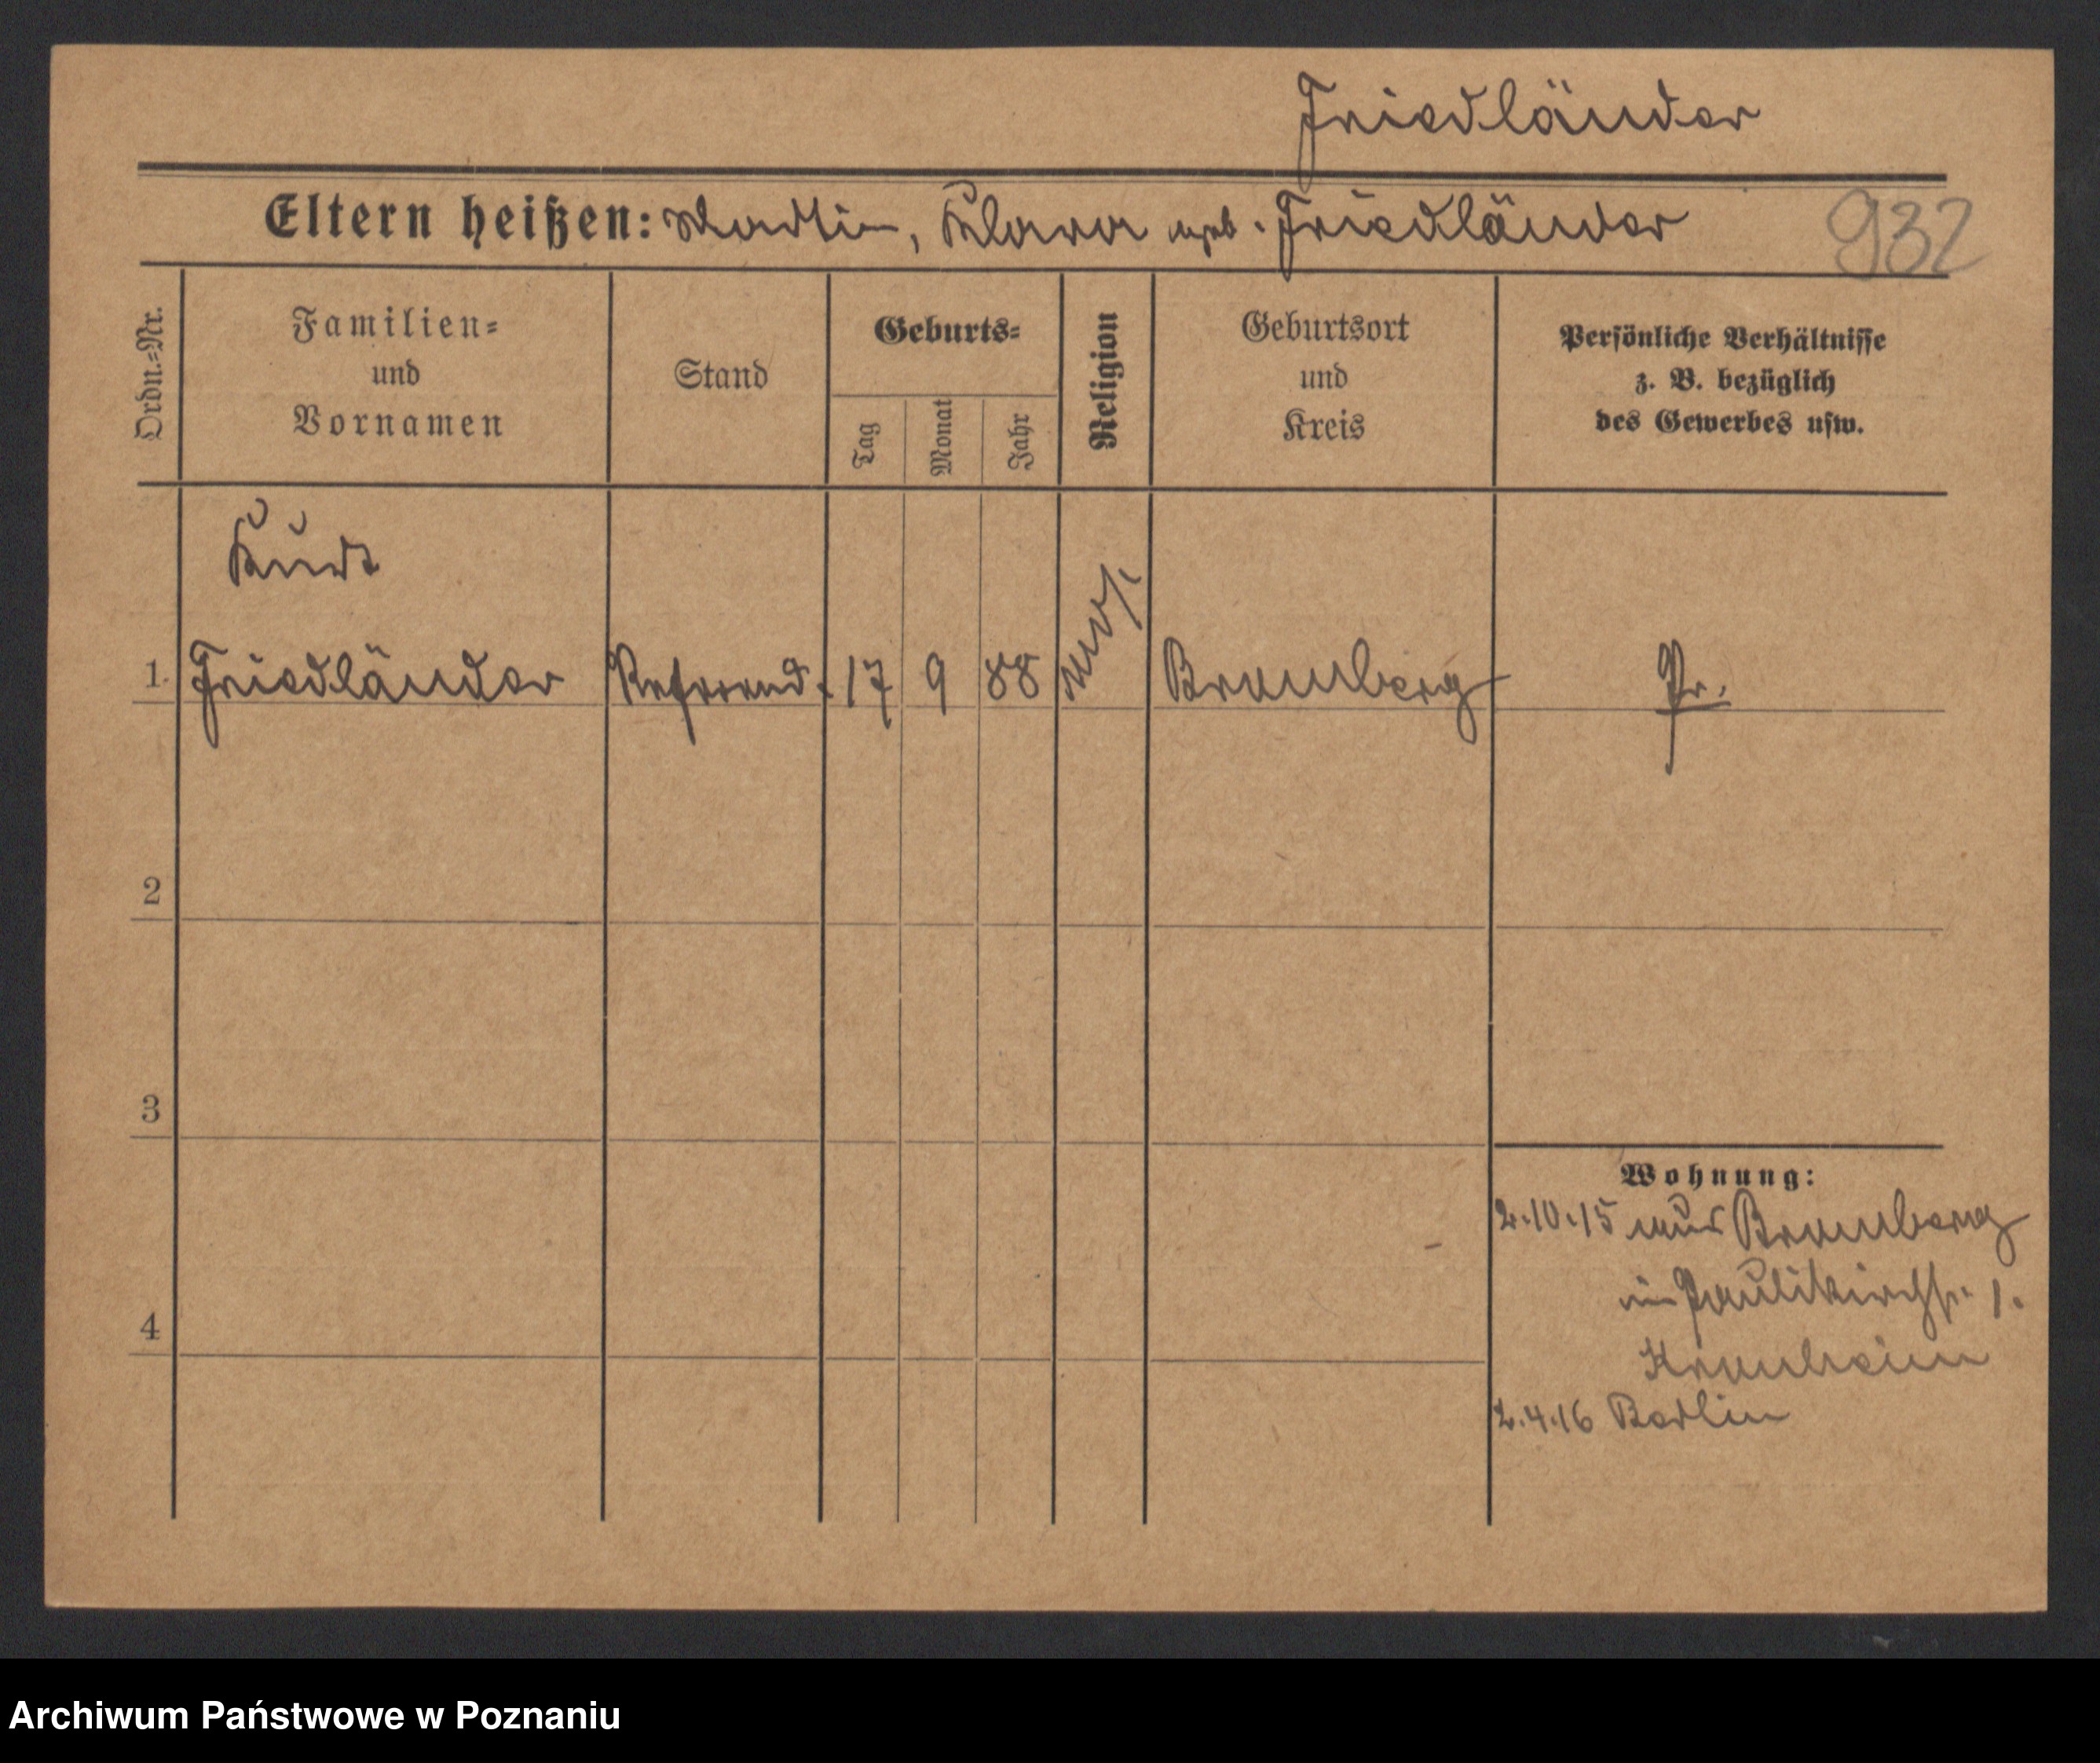 Friedländer
Eltern heißen: Martin, Klara geb. Friedländer
932
Ordn.=Nr.
Familien=
und
Vornamen
Stand
Geburts=
Tag
Monat
Jahr
Religion
Geburtsort
und
Kreis
Persönliche Verhältnisse
z. B. bezüglich
des Gewerbes usw.
Kurt
1. Friedländer Referend. 17 9 88 mos. Bromberg Pr.
2
3
4
Wohnung:
2.10.15 aus Bromberg
in Paulikirchstr. 1.
2.4.16 Berlin
Archiwum Państwowe w Poznaniu